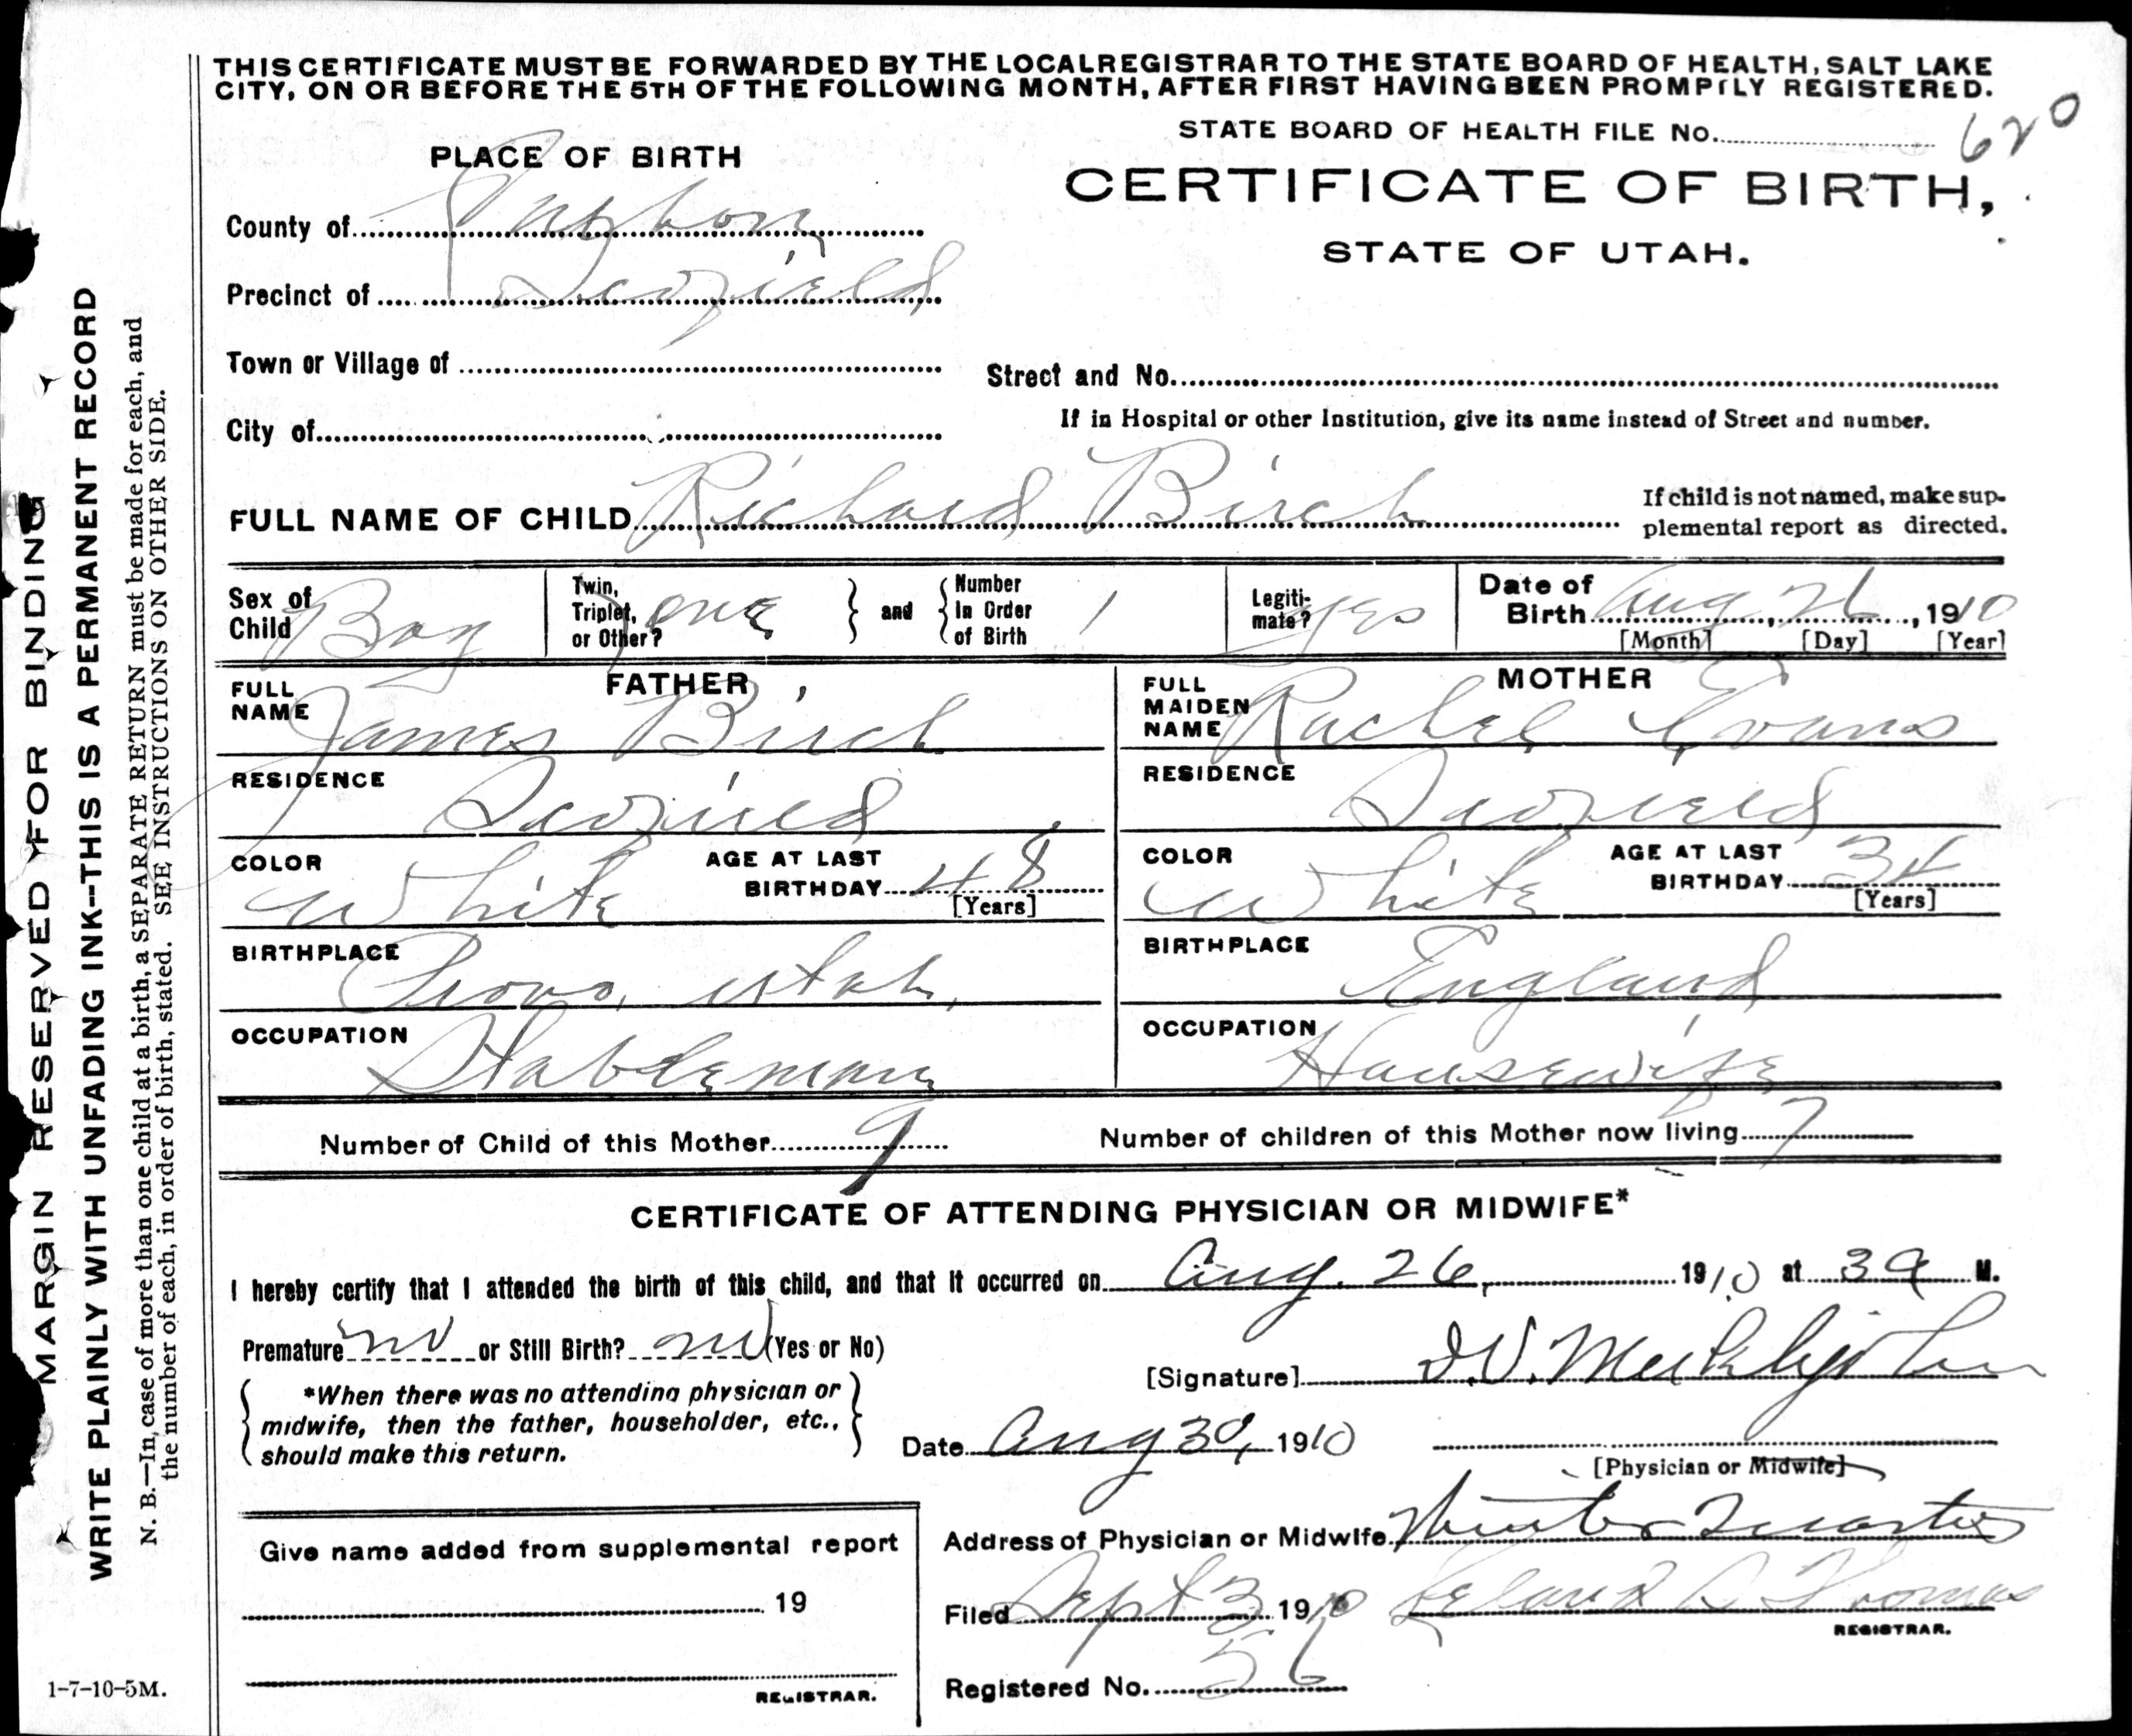 THIS CERTIFICATE MUST BE FORWARDED BY THE LOCAL REGISTRAR TO THE STATE BOARD OF HEALTH, SALT LAKE
CITY, ON OR BEFORE THE 5TH OF THE FOLLOWING MONTH, AFTER FIRST HAVING BEEN PROMPTLY REGISTERED.
STATE BOARD OF HEALTH FILE No. 620
PLACE OF BIRTH
CERTIFICATE OF BIRTH,
STATE OF UTAH.
County of
Precinct of Scofield
Town or Village of
Street and No.
If in Hospital or other Institution, give its name instead of Street and number.
City of
FULL NAME OF CHILD Richard Birch
If child is not named, make sup-
plemental report as directed.
Sex of Child Boy
Twin, Triplet, or Other? one } and { Number In Order of Birth 1
Legiti-mate? yes
Date of Birth Aug 26, 1910
[Month] [Day] [Year]
FATHER
FULL NAME James Birch
RESIDENCE Scofield
COLOR White AGE AT LAST BIRTHDAY 48
[Years]
BIRTHPLACE Provo, Utah,
OCCUPATION Stableman
MOTHER
FULL MAIDEN NAME Rachel Evans
RESIDENCE Scofield
COLOR White AGE AT LAST BIRTHDAY 34
[Years]
BIRTHPLACE England
OCCUPATION Housewife
Number of Child of this Mother 9 Number of children of this Mother now living 7
CERTIFICATE OF ATTENDING PHYSICIAN OR MIDWIFE*
I hereby certify that I attended the birth of this child, and that it occurred on Aug. 26, 1910 at 3 a M.
Premature no or Still Birth? no (Yes or No)
*When there was no attending physician or
midwife, then the father, householder, etc.,
should make this return.
[Signature]
Date Aug 30, 1910
[Physician or Midwife]
Address of Physician or Midwife Winter Quarters
Give name added from supplemental report
19
REGISTRAR.
Filed Sept 3 1910 Leland D Thomas
REGISTRAR.
Registered No. 56
MARGIN RESERVED FOR BINDING
WRITE PLAINLY WITH UNFADING INK--THIS IS A PERMANENT RECORD
N. B.—In case of more than one child at a birth, a SEPARATE RETURN must be made for each, and
the number of each, in order of birth, stated. SEE INSTRUCTIONS ON OTHER SIDE.
1-7-10-5M.